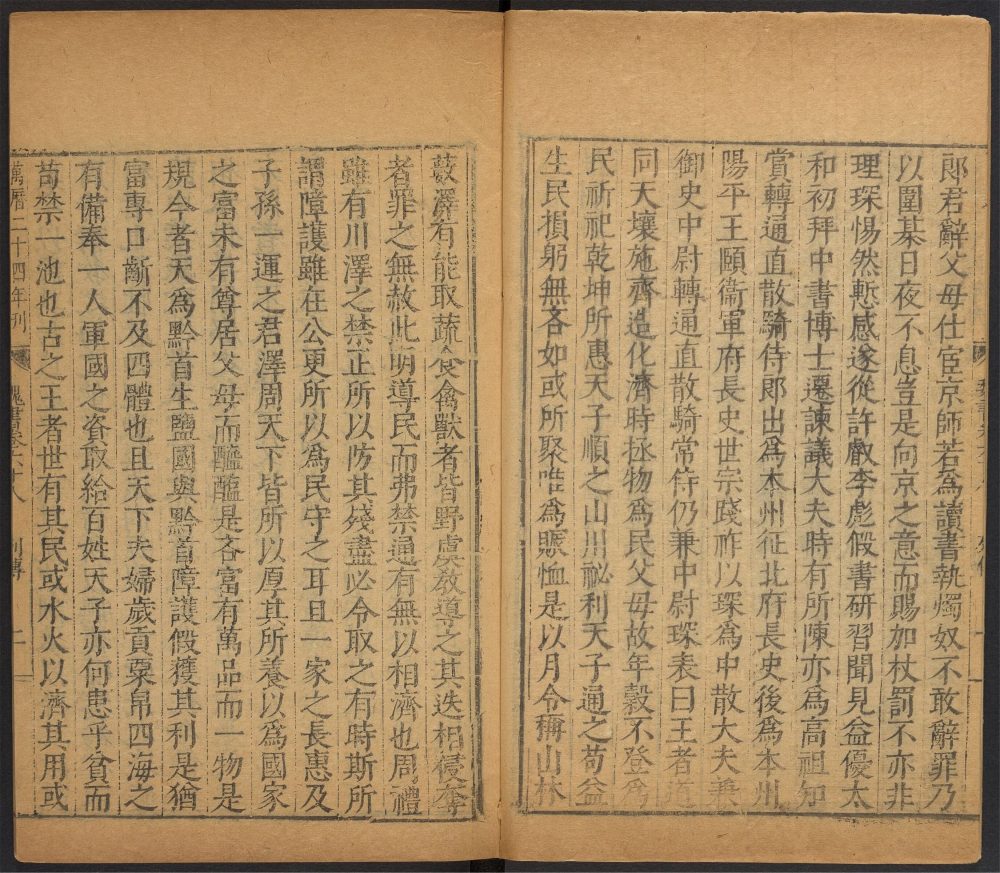 郎君辭父母仕宦京師若為讀書執燭奴不敢辭罪乃
以圍棊日夜不息豈是向京之意而賜加杖罰不亦非
理琛惕然慙感遂從許叡李彪假書研習聞見益優太
和初拜中書博士遷諫議大夫時有所陳亦為高祖知
賞轉通直散騎侍郎出為本州征北府長史後為本州
陽平王頤衛軍府長史世宗踐祚以琛為中散大夫兼
御史中尉轉通直散騎常侍仍兼中尉琛表曰王者道
同天壤施齊造化濟時拯物為民父母故年穀不登為
民祈祀乾坤所惠天子順之山川祕利天子通之苟益
生民損躬無吝如或所聚唯為賑恤是以月令稱山林
藪澤有能取蔬食禽獸者皆野虞教導之其迭相侵奪
者罪之無赦此明導民而弗禁通有無以相濟也周禮
雖有川澤之禁正所以防其殘盡必令取之有時斯所
謂障護雖在公更所以為民守之耳且一家之長惠及
子孫一運之君澤周天下皆所以厚其所養以為國家
之富未有尊居父母而醯醢是吝富有萬品而一物是
規今者天為黔首生鹽國與黔首障護假獲其利是猶
富專口齗不及四體也且天下夫婦歲貢粟帛四海之
有備奉一人軍國之資取給百姓天子亦何患乎貧而
苟禁一池也古之王者世有其民或水火以濟其用或
萬曆二十四年刊 魏書卷六十八 列傳 二